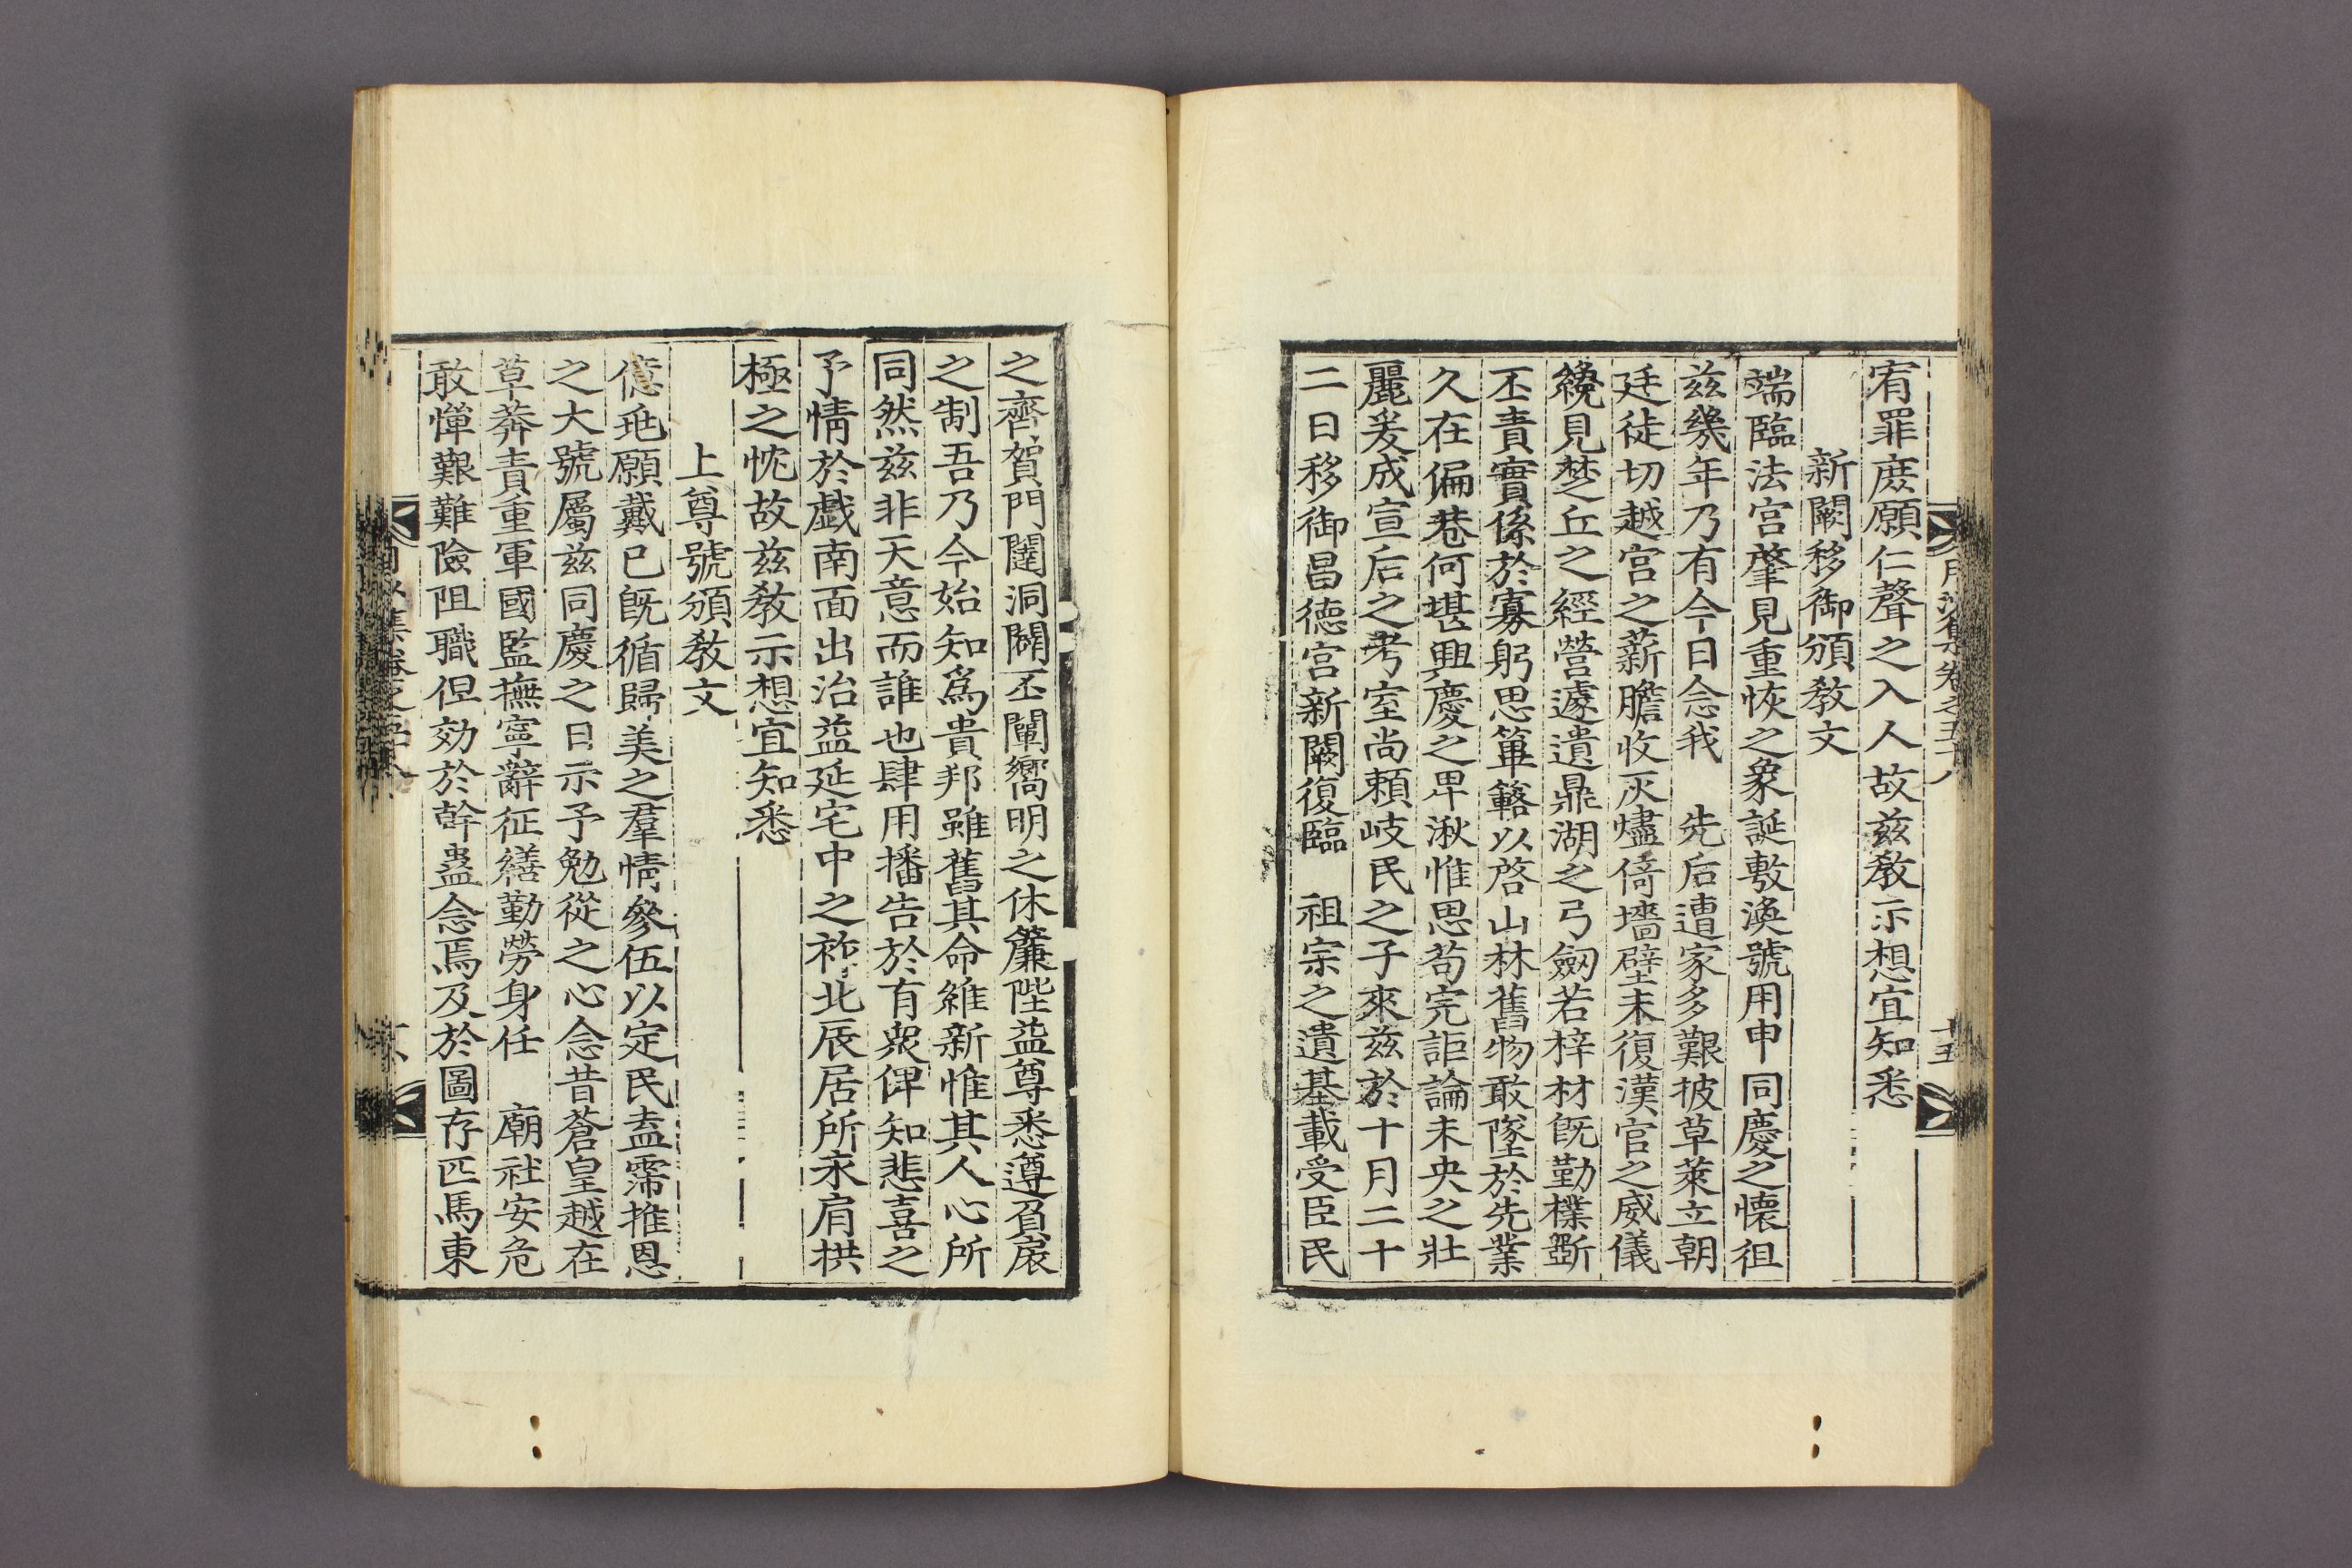 月沙集卷之五十八
十五
宥罪庶願仁聲之入人故兹敎示想宜知悉
新闕移御頒敎文
端臨法宮肇見重恢之象誕敷渙號用申同慶之懷徂
兹幾年乃有今日念我 先后遭家多艱披草萊立朝
廷徒切越宮之薪膽收灰燼倚墻壁未復漢官之威儀
纔見楚丘之經營遽遺鼎湖之弓劒若梓材旣勤樸斲
丕責實係於寡躬思篳簬以啓山林舊物敢墜於先業
久在偏巷何堪興慶之卑湫惟思苟完詎論未央之壯
麗爰成宣后之考室尚賴岐民之子來兹於十月二十
二日移御昌德宮新闕復臨 祖宗之遺基載受臣民
之齊賀門闥洞闢丕闡嚮明之休簾陛益尊悉遵負扆
之制吾乃今始知爲貴邦雖舊其命維新惟其人心所
同然兹非天意而誰也肆用播告於有衆俾知悲喜之
予情於戱南面出治益延宅中之祚北辰居所永肩拱
極之忱故兹敎示想宜知悉
上尊號頒敎文
億兆願戴已旣循歸美之羣情參伍以定民盍霈推恩
之大號屬兹同慶之日示予勉從之心念昔蒼皇越在
草莽責重軍國監撫寧辭征繕勤勞身任 廟社安危
敢憚艱難險阻職但効於幹蠱念焉及於圖存匹馬東